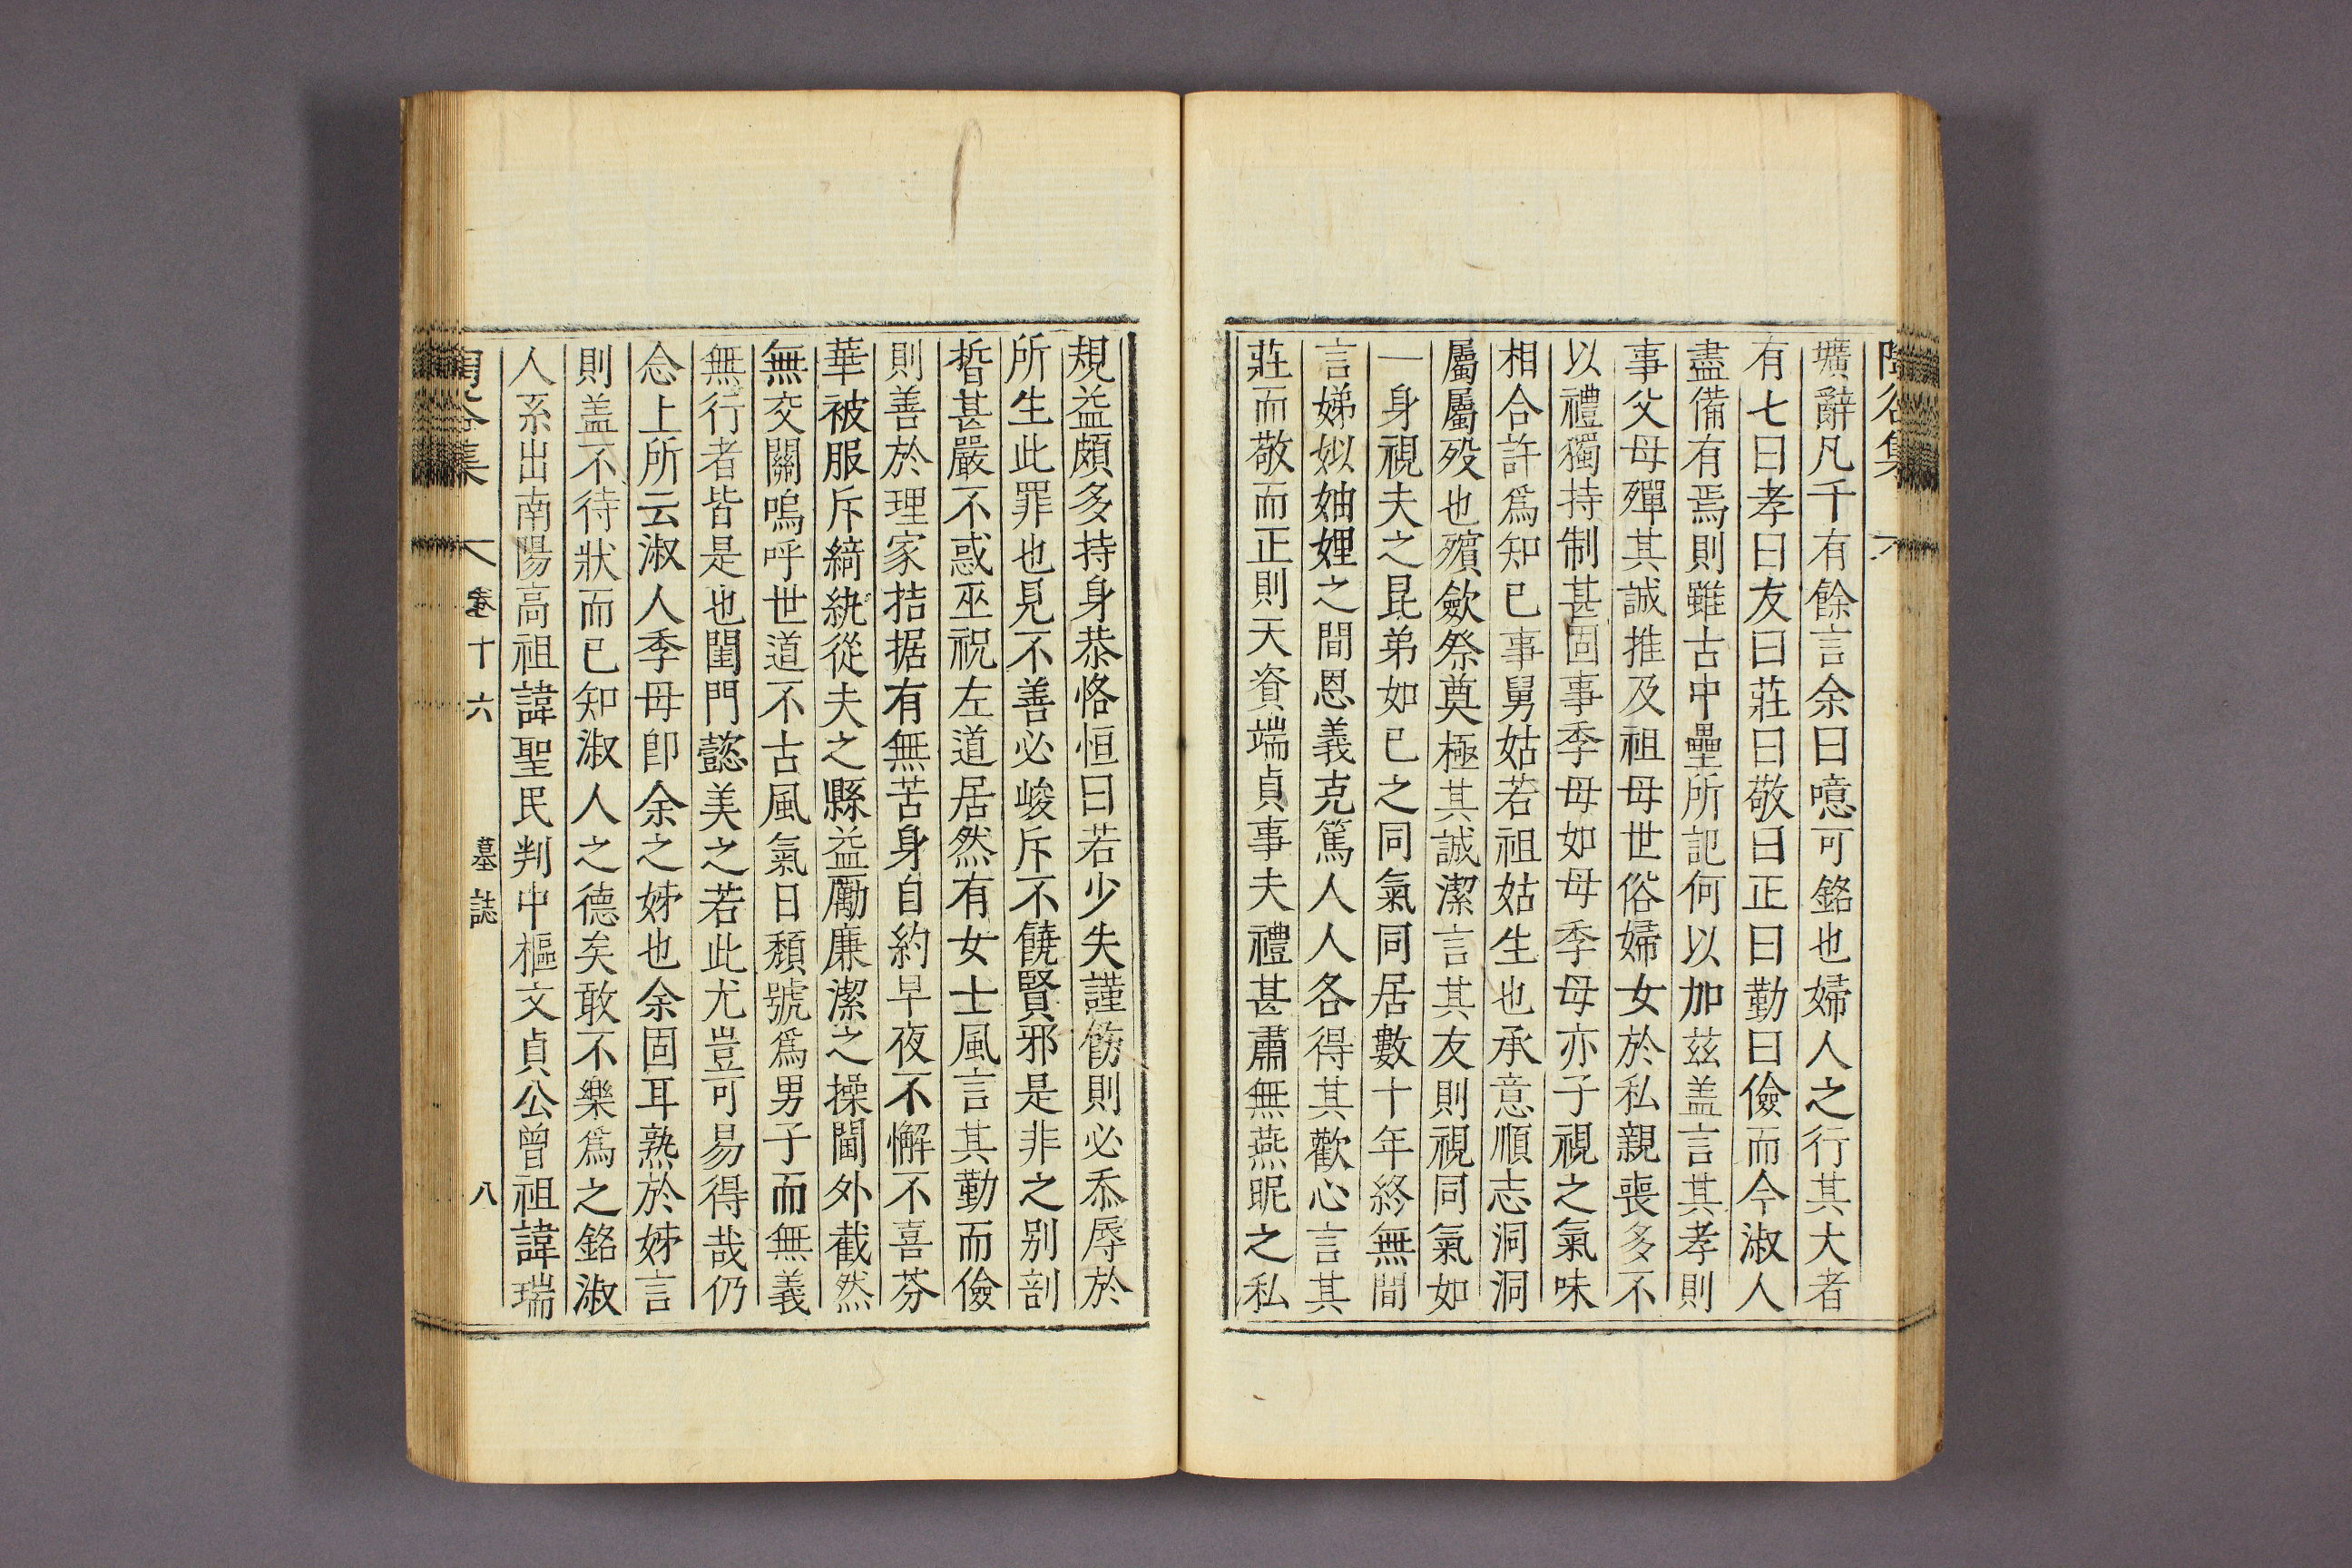 陶谷集
壙辭凡千有餘言余曰噫可銘也婦人之行其大者
有七曰孝曰友曰莊曰敬曰正曰勤曰儉而今淑人
盡備有焉則雖古中壘所記何以加玆盖言其孝則
事父母殫其誠推及祖母世俗婦女於私親喪多不
以禮獨持制甚固事季母如母季母亦子視之氣味
相合許爲知已事舅姑若祖姑生也承意順志洞洞
屬屬歿也殯歛祭奠極其誠潔言其友則視同氣如
一身視夫之昆弟如已之同氣同居數十年終無間
言娣姒妯娌之間恩義克篤人人各得其歡心言其
莊而敬而正則天資端貞事夫禮甚肅無燕昵之私
規益頗多持身恭恪恒曰若少失謹飭則必忝辱於
所生此罪也見不善必峻斥不饒賢邪是非之别剖
晳甚嚴不惑巫祝左道居然有女士風言其勤而儉
則善於理家拮据有無苦身自約早夜不懈不喜芬
華被服斥綺紈從夫之縣益勵廉潔之操閫外截然
無交關嗚呼世道不古風氣日頹號爲男子而無義
無行者皆是也閨門懿美之若此尤豈可易得哉仍
念上所云淑人季母卽余之姊也余固耳熟於姊言
則盖不待狀而已知淑人之德矣敢不樂爲之銘淑
人系出南陽高祖諱聖民判中樞文貞公曾祖諱瑞
陶谷集 卷十六 墓誌 八